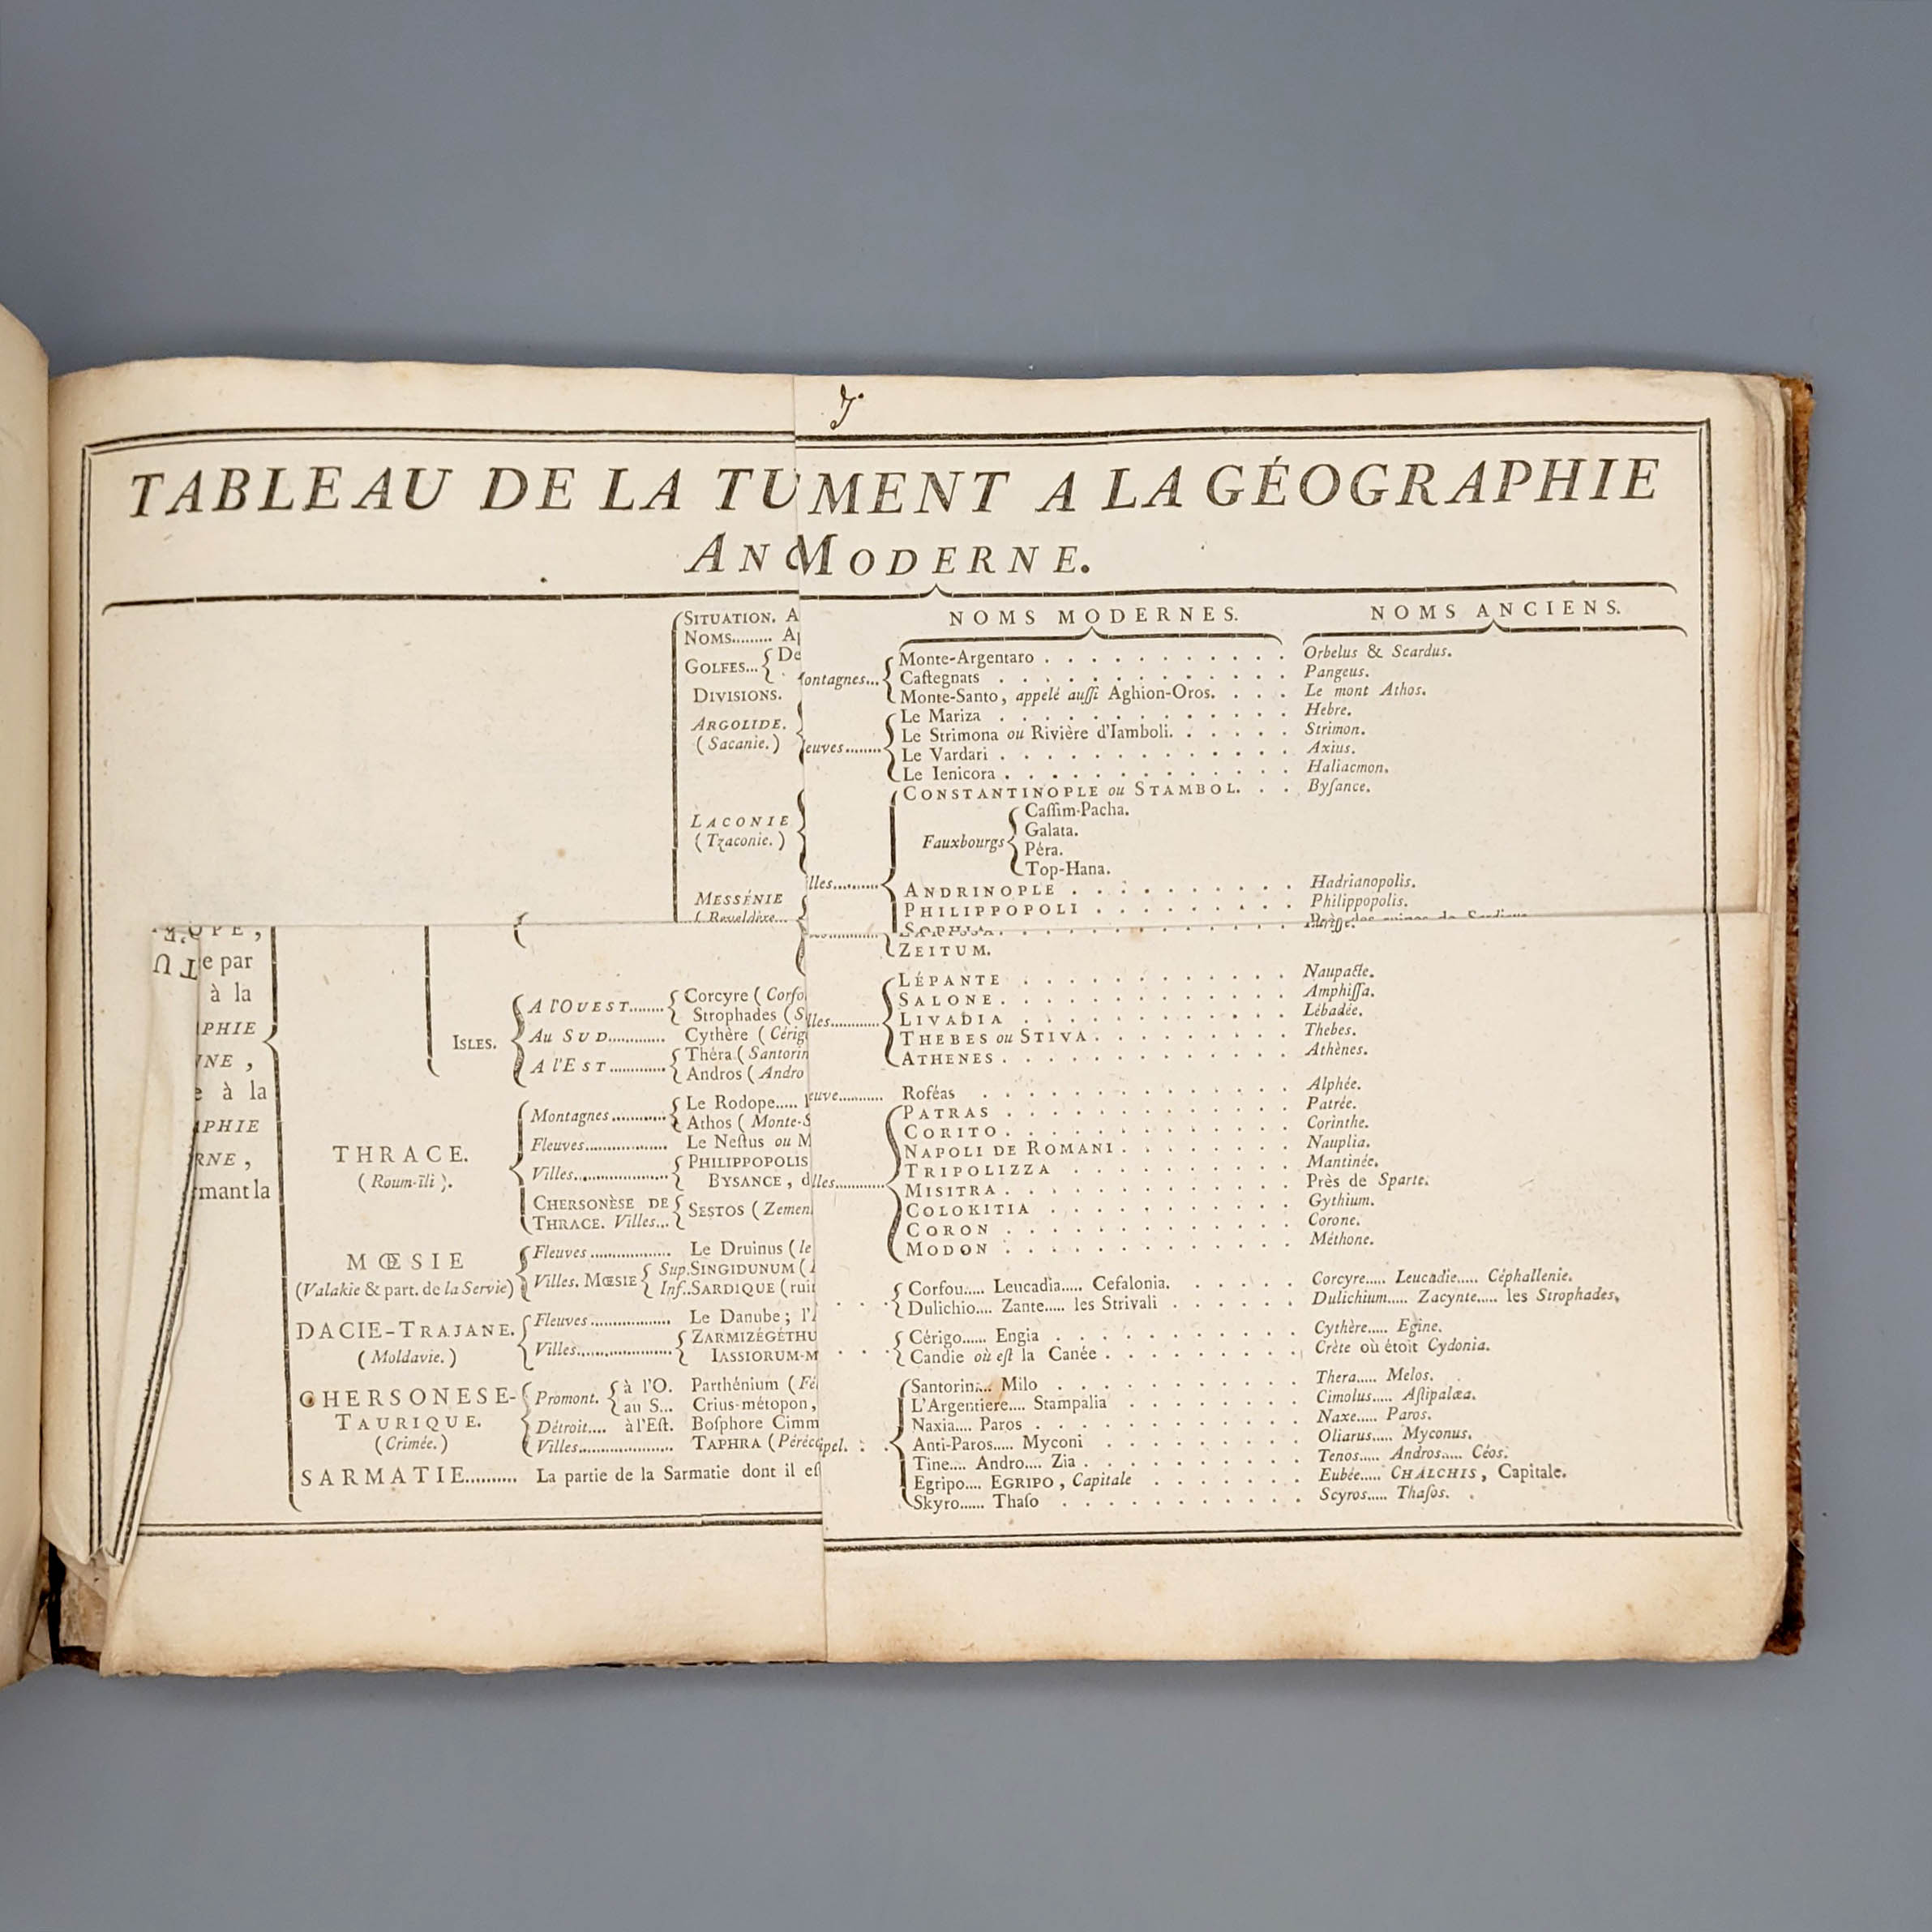 TABLEAU DE LA TUMENT A LA GÉOGRAPHIE
ANCMODERNE.
NOMS MODERNES. NOMS ANCIENS.
SITUATION. A
NOMS......... A
GOLFES... De
DIVISIONS.
ARGOLIDE.
(Sacanie.)
LACONIE
(Tzaconie.)
MESSÉNIE
ontagnes...
Monte-Argentaro . . . . . . . . . . . Orbelus & Scardus.
Caſtegnats . . . . . . . . . . . . Pangeus.
Monte-Santo, appelé auſſi Aghion-Oros. . . . Le mont Athos.
euves........
Le Mariza . . . . . . . . . . . . Hebre.
Le Strimona ou Rivière d'Iamboli. . . . . . Strimon.
Le Vardari . . . . . . . . . . . . Axius.
Le Ienicora . . . . . . . . . . . . Haliacmon.
CONSTANTINOPLE ou STAMBOL. . . Byſance.
Fauxbourgs
Caſſim-Pacha.
Galata.
Péra.
Top-Hana.
lles..........
ANDRINOPLE . . . . . . . . . . Hadrianopolis.
PHILIPPOPOLI . . . . . . . . . Philippopolis.
SOPHIA
OPE,
e par
à la
PHIE
NE,
e à la
PHIE
RNE,
mant la
ISLES.
A l'OUEST........ Corcyre (Corfo
Strophades (S
Au SUD............. Cythère (Cérig
A l'EST............. Théra (Santorin
Andros (Andro
THRACE.
(Roum-ïli).
Montagnes........... Le Rodope.....
Athos (Monte-S
Fleuves.................. Le Neſtus ou M
Villes..................... PHILIPPOPOLIS
BYSANCE, d
CHERSONÈSE DE
THRACE. Villes... SESTOS (Zemen
MŒSIE
(Valakie & part. de la Servie)
Fleuves.................. Le Drinus (le
Villes. MŒSIE Sup. SINGIDUNUM (
Inf.. SARDIQUE (rui
DACIE-TRAJANE.
(Moldavie.)
Fleuves.................. Le Danube; l'
Villes..................... ZARMIZÉGÉTHU
IASSIORUM-M
CHERSONESE-
TAURIQUE.
(Crimée.)
Promont. à l'O. Parthénium (Fé
au S... Crius-métopon,
Détroit.... à l'Eſt. Boſphore Cimm
Villes..................... TAPHRA (Péréc
SARMATIE.......... La partie de la Sarmatie dont il eſ
ZEITUM.
lles............
LÉPANTE . . . . . . . . . . . . Naupacte.
SALONE . . . . . . . . . . . . Amphiſſa.
LIVADIA . . . . . . . . . . . . Lébadée.
THEBES ou STIVA . . . . . . . . . Thebes.
ATHENES . . . . . . . . . . . . Athènes.
euve........... Roféas . . . . . . . . . . . . Alphée.
lles............
PATRAS . . . . . . . . . . . . Patrée.
CORITO . . . . . . . . . . . . Corinthe.
NAPOLI DE ROMANI . . . . . . . . Nauplia.
TRIPOLIZZA . . . . . . . . . . Mantinée.
MISITRA . . . . . . . . . . . . Près de Sparte.
COLOKITIA . . . . . . . . . . . Gythium.
CORON . . . . . . . . . . . . Corone.
MODON . . . . . . . . . . . . Méthone.
Corfou..... Leucadia..... Cefalonia. . . . . . Corcyre..... Leucadie..... Céphallenie.
Dulichio.... Zante..... les Strivali . . . . . . Dulichium..... Zacynte..... les Strophades,
Cérigo...... Engia . . . . . . . . . . Cythère..... Egine.
Candie où eſt la Canée . . . . . . . . . Crète où étoit Cydonia.
ipel. :
Santorin.... Milo . . . . . . . . . . Thera..... Melos.
L'Argentiere.... Stampalia . . . . . . . Cimolus..... Aſtipalæa.
Naxia.... Paros . . . . . . . . . . . Naxe..... Paros.
Anti-Paros..... Myconi . . . . . . . . Oliarus..... Myconus.
Tine.... Andro.... Zia . . . . . . . . . Tenos..... Andros..... Céos.
Egripo.... EGRIPO, Capitale . . . . . . Eubée..... CHALCHIS, Capitale.
Skyro...... Thaſo . . . . . . . . . . Scyros..... Thaſos.